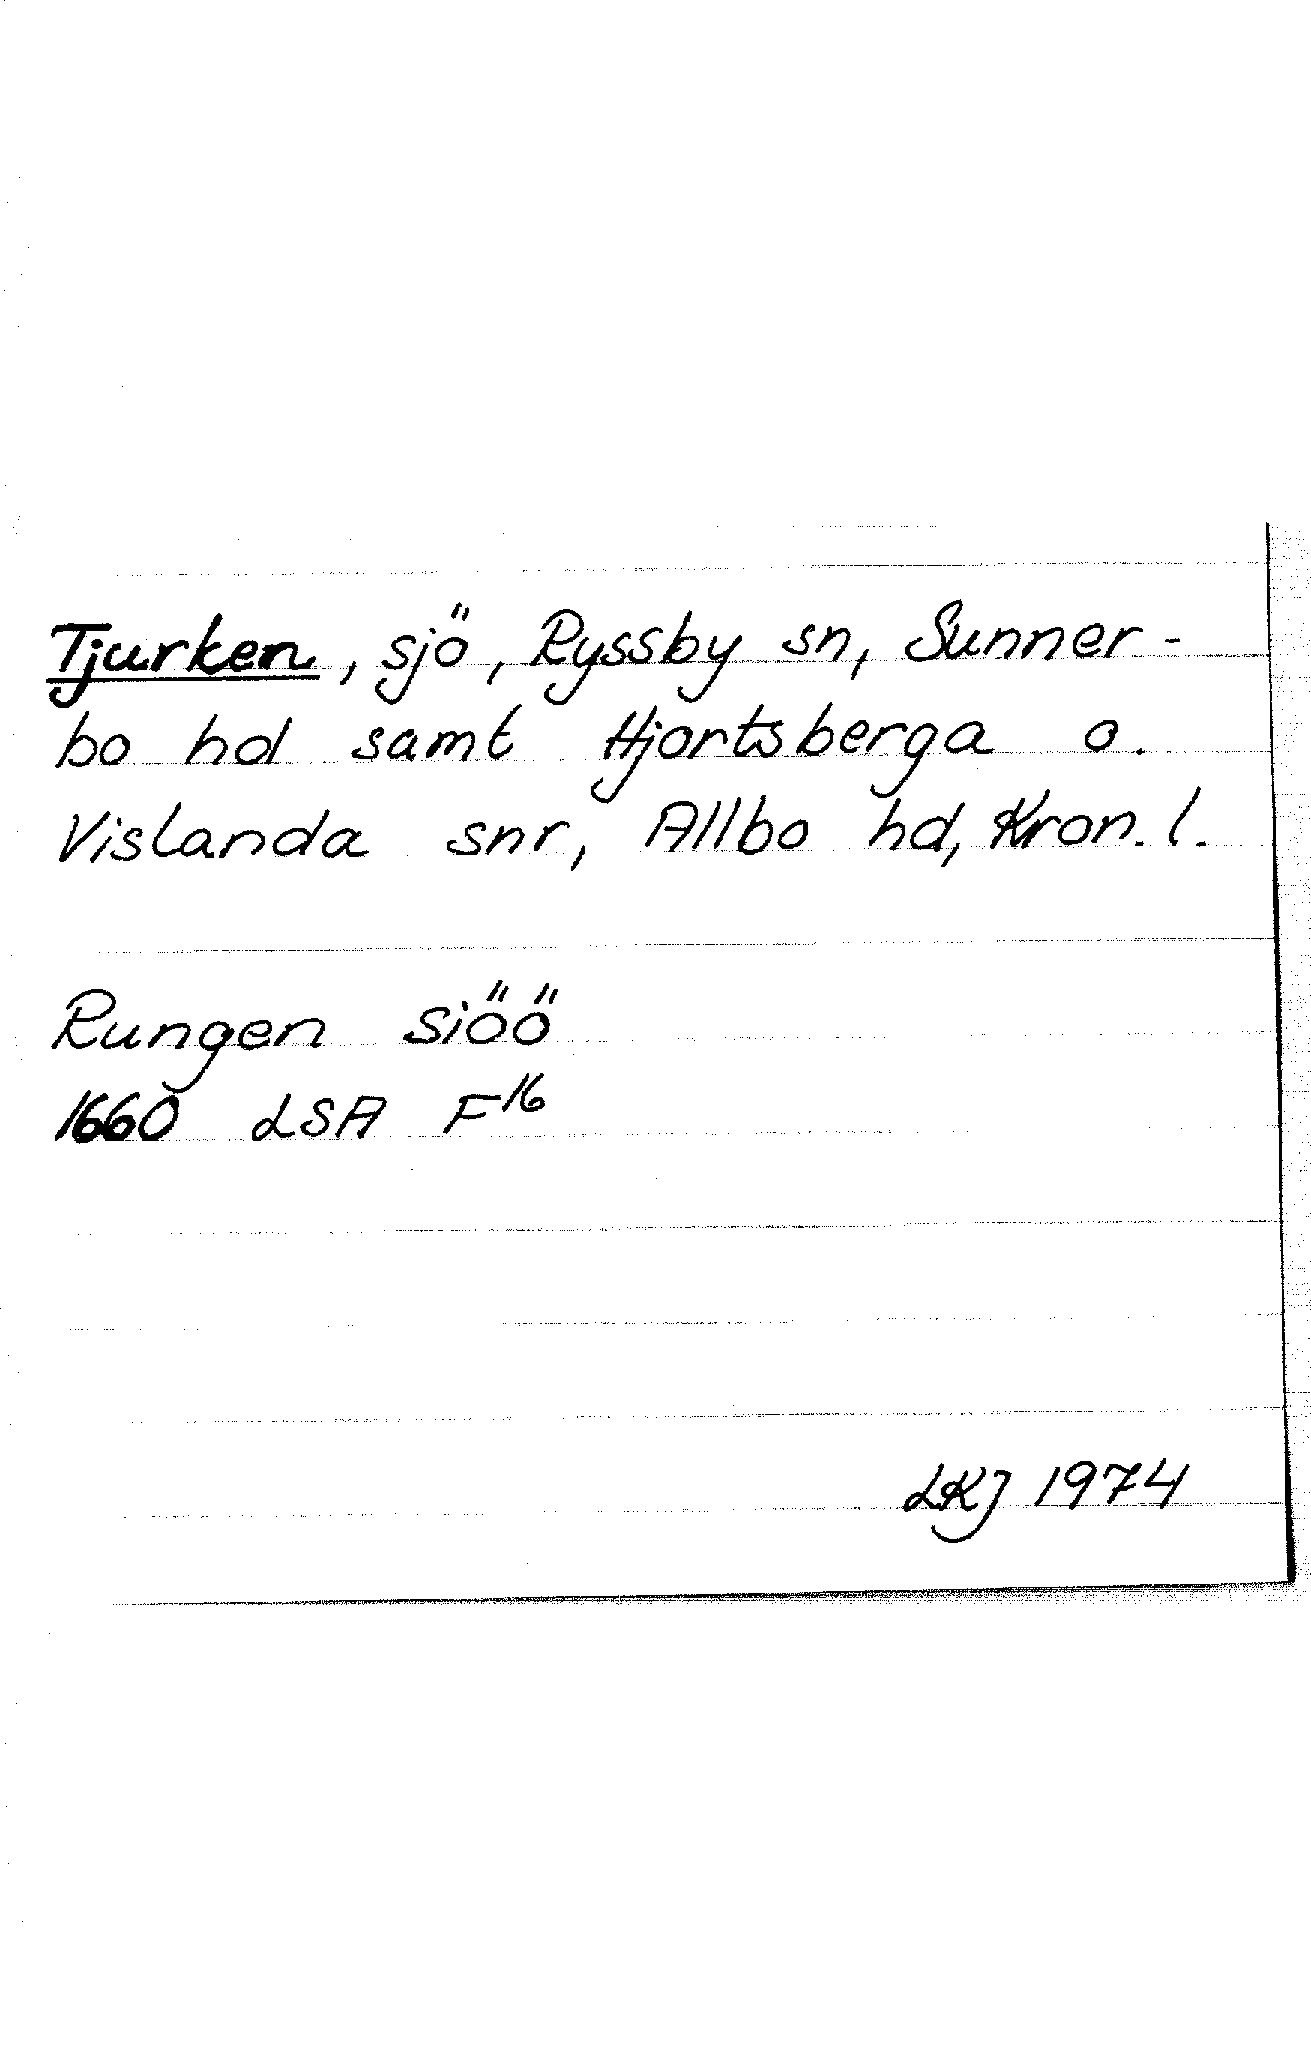 Tjurken, sjö, Ryssby sn, Sunner-
bo hd samt Hjortsberga o.
Vislanda snr, Allbo hd, Kron. l.
Rungen siöö
1660 LSA F16
LKJ 1974